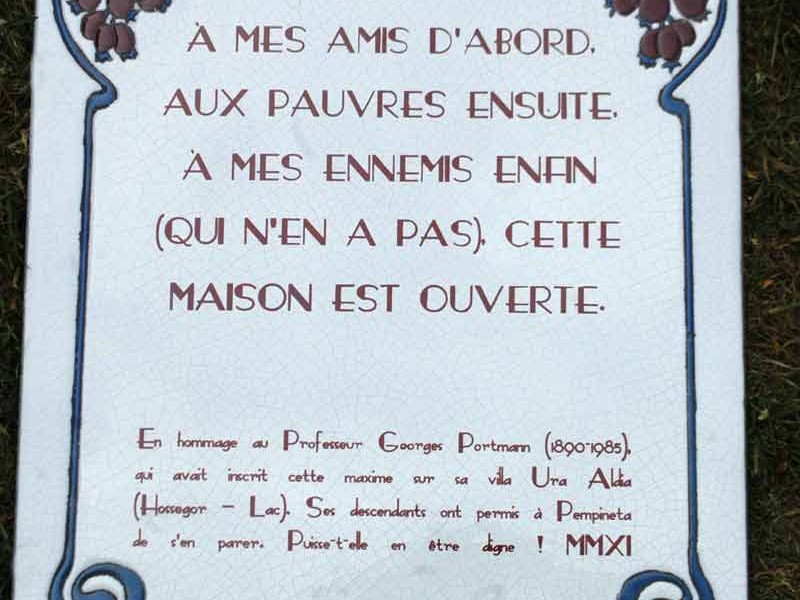 À MES AMIS D'ABORD,
AUX PAUVRES ENSUITE,
À MES ENNEMIS ENFIN
(QUI N'EN A PAS), CETTE
MAISON EST OUVERTE.
En hommage au Professeur Georges Portmann (1890-1985),
qui avait inscrit cette maxime sur sa villa Ura Aldia
(Hossegor - Lac). Ses descendants ont permis à Pempineta
de s'en parer. Puisse-t-elle en être digne ! MMXI